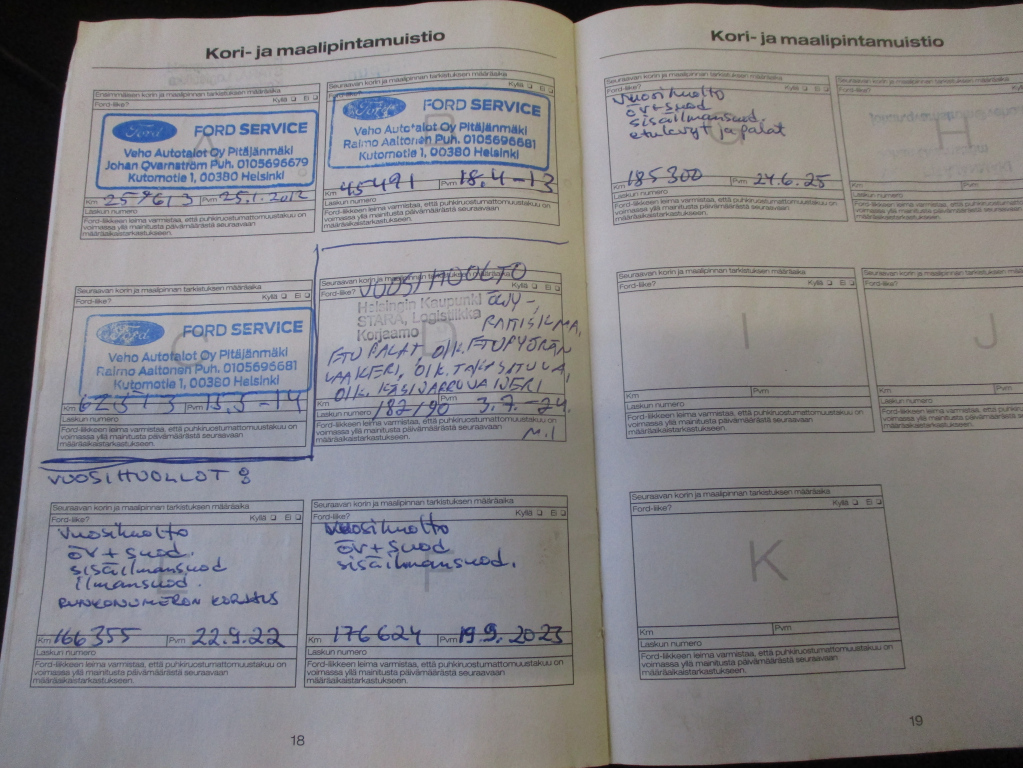 Kori- ja maalipintamuistio
Ensimmäisen korin ja maalipinnan tarkistuksen määräaika
Ford-liike?
Kyllä ❑ Ei ❑
A
Ford
FORD SERVICE
Veho Autotalot Oy Pitäjänmäki
Johan Qvarnström Puh. 0105696679
Kutomotie 1, 00380 Helsinki
Km
Pvm 25.1.2012
Laskun numero
Ford-liikkeen leima varmistaa, että puhkiruostumattomuustakuu on
voimassa yllä mainitusta päivämäärästä seuraavaan
määräaikaistarkastukseen.
Seuraavan korin ja maalipinnan tarkistuksen määräaika
Ford-liike?
Kyllä ❑ Ei ❑
B
Ford
FORD SERVICE
Veho Autotalot Oy Pitäjänmäki
Raimo Aaltonen Puh. 0105696681
Kutomotie 1, 00380 Helsinki
Km 45491 Pvm 18.4-13
Laskun numero
Ford-liikkeen leima varmistaa, että puhkiruostumattomuustakuu on
voimassa yllä mainitusta päivämäärästä seuraavaan
määräaikaistarkastukseen.
Seuraavan korin ja maalipinnan tarkistuksen määräaika
Ford-liike?
Kyllä ❑ Ei ❑
C
Ford
FORD SERVICE
Veho Autotalot Oy Pitäjänmäki
Raimo Aaltonen Puh. 0105696681
Kutomotie 1, 00380 Helsinki
Km 62313 Pvm 15.5-14
Laskun numero
Ford-liikkeen leima varmistaa, että puhkiruostumattomuustakuu on
voimassa yllä mainitusta päivämäärästä seuraavaan
määräaikaistarkastukseen.
Seuraavan korin ja maalipinnan tarkistuksen määräaika
Ford-liike?
Kyllä ❑ Ei ❑
VUOSIHUOLTO
D
Helsingin Kaupunki
STARA, Logistiikka
Korjaamo
ÖLJY-,
RAITISILMA,
ETUPALAT, OIK. ETUPYÖRÄN
LAAKERI, OIK. TAKASATULA,
OIK. KÄSIJARRUVAIJERI
Km 182190 Pvm 3.7-24.
Laskun numero
M.I
Ford-liikkeen leima varmistaa, että puhkiruostumattomuustakuu on
voimassa yllä mainitusta päivämäärästä seuraavaan
määräaikaistarkastukseen.
VUOSIHUOLLOT :
Seuraavan korin ja maalipinnan tarkistuksen määräaika
Ford-liike?
Kyllä ❑ Ei ❑
E
vuosihuolto
öv + suod.
sisäilmansuod
ilmansuod.
RUNKONUMERON KORJAUS
Km 166355 Pvm 22.9.22
Laskun numero
Ford-liikkeen leima varmistaa, että puhkiruostumattomuustakuu on
voimassa yllä mainitusta päivämäärästä seuraavaan
määräaikaistarkastukseen.
Seuraavan korin ja maalipinnan tarkistuksen määräaika
Ford-liike?
Kyllä ❑ Ei ❑
F
vuosihuolto
öv + suod
sisäilmansuod.
Km 176624 Pvm 19.9.2023
Laskun numero
Ford-liikkeen leima varmistaa, että puhkiruostumattomuustakuu on
voimassa yllä mainitusta päivämäärästä seuraavaan
määräaikaistarkastukseen.
18
Kori- ja maalipintamuistio
Seuraavan korin ja maalipinnan tarkistuksen määräaika
Ford-liike?
Kyllä ❑ Ei ❑
G
vuosihuolto
öv+suod
sisäilmansuod.
etulevyt ja palat
Km 185300 Pvm 24.6.25
Laskun numero
Ford-liikkeen leima varmistaa, että puhkiruostumattomuustakuu on
voimassa yllä mainitusta päivämäärästä seuraavaan
määräaikaistarkastukseen.
Seuraavan korin ja maalipinnan tarkistuksen
Ford-liike?
H
Km
Pvm
Laskun numero
Ford-liikkeen leima varmistaa, että puhkiruostumattomuus
voimassa yllä mainitusta päivämäärästä
määräaikaistarkastukseen.
Seuraavan korin ja maalipinnan tarkistuksen määräaika
Ford-liike?
Kyllä ❑ Ei ❑
I
Km
Pvm
Laskun numero
Ford-liikkeen leima varmistaa, että puhkiruostumattomuustakuu on
voimassa yllä mainitusta päivämäärästä seuraavaan
määräaikaistarkastukseen.
Seuraavan korin ja maalipinnan tarkistuksen
Ford-liike?
J
Km
Pvm
Laskun numero
Ford-liikkeen leima varmistaa, että
voimassa yllä mainitusta päivämäärästä
määräaikaistarkastukseen.
Seuraavan korin ja maalipinnan tarkistuksen määräaika
Ford-liike?
Kyllä ❑ Ei ❑
K
Km
Pvm
Laskun numero
Ford-liikkeen leima varmistaa, että puhkiruostumattomuustakuu on
voimassa yllä mainitusta päivämäärästä seuraavaan
määräaikaistarkastukseen.
19